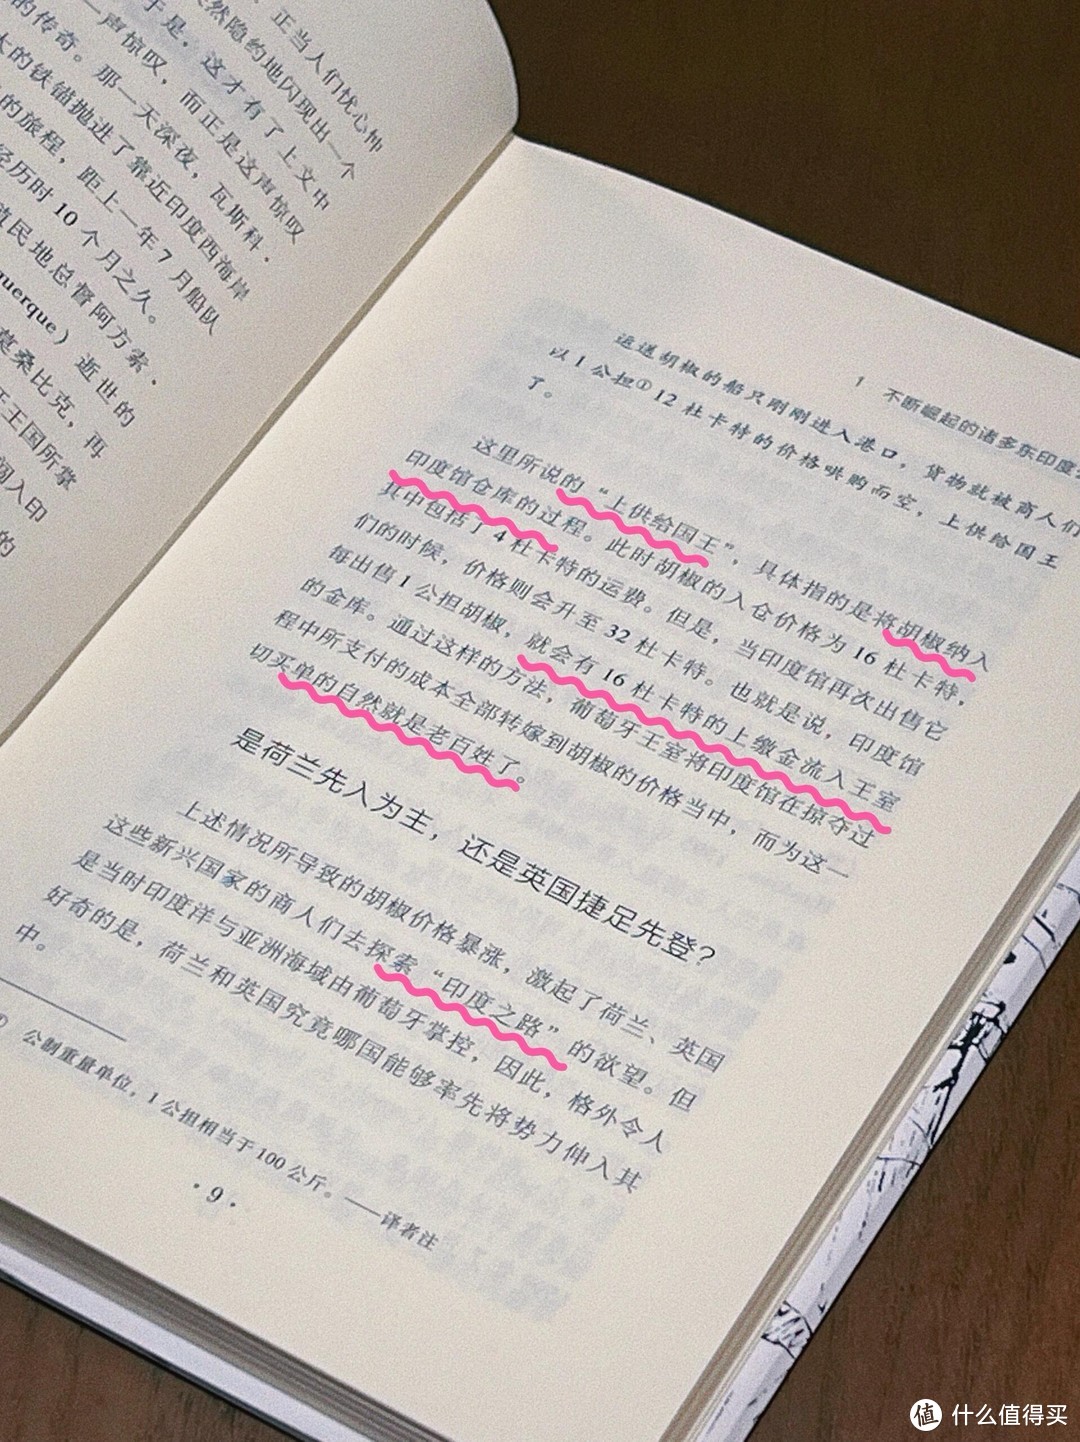 正当人们忧心忡
然隐约地闪现出一个
于是，这才有了上文中
的传奇。那一天深夜，瓦斯科·
一声惊叹，而正是这声惊叹
大的铁锚抛进了靠近印度西海岸
的旅程，距上一年7月船队
经历时10个月之久。
殖民地总督阿方索·
querque）逝世的
莫桑比克，再
王国所掌
闯入印
的
1 不断崛起的诸多东印度
运送胡椒的船只刚刚进入港口，货物就被商人们
以1公担①12杜卡特的价格哄购而空，上供给国王
了。
这里所说的“上供给国王”，具体指的是将胡椒纳入
印度馆仓库的过程。此时胡椒的入仓价格为16杜卡特，
其中包括了4杜卡特的运费。但是，当印度馆再次出售它
们的时候，价格则会升至32杜卡特。也就是说，印度馆
每出售1公担胡椒，就会有16杜卡特的上缴金流入王室
的金库。通过这样的方法，葡萄牙王室将印度馆在掠夺过
程中所支付的成本全部转嫁到胡椒的价格当中，而为这一
切买单的自然就是老百姓了。
是荷兰先入为主，还是英国捷足先登？
上述情况所导致的胡椒价格暴涨，激起了荷兰、英国
这些新兴国家的商人们去探索“印度之路”的欲望。但
是当时印度洋与亚洲海域由葡萄牙掌控，因此，格外令人
好奇的是，荷兰和英国究竟哪国能够率先将势力伸入其
中。
① 公制重量单位，1公担相当于100公斤。——译者注
·9·
值 什么值得买